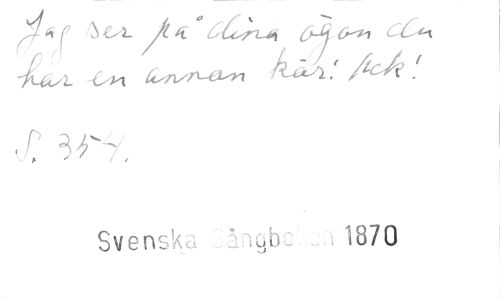 Jag ser på dina ögon du
har en annan kär! fck!
S. 354.
Svenska Sångboken 1870